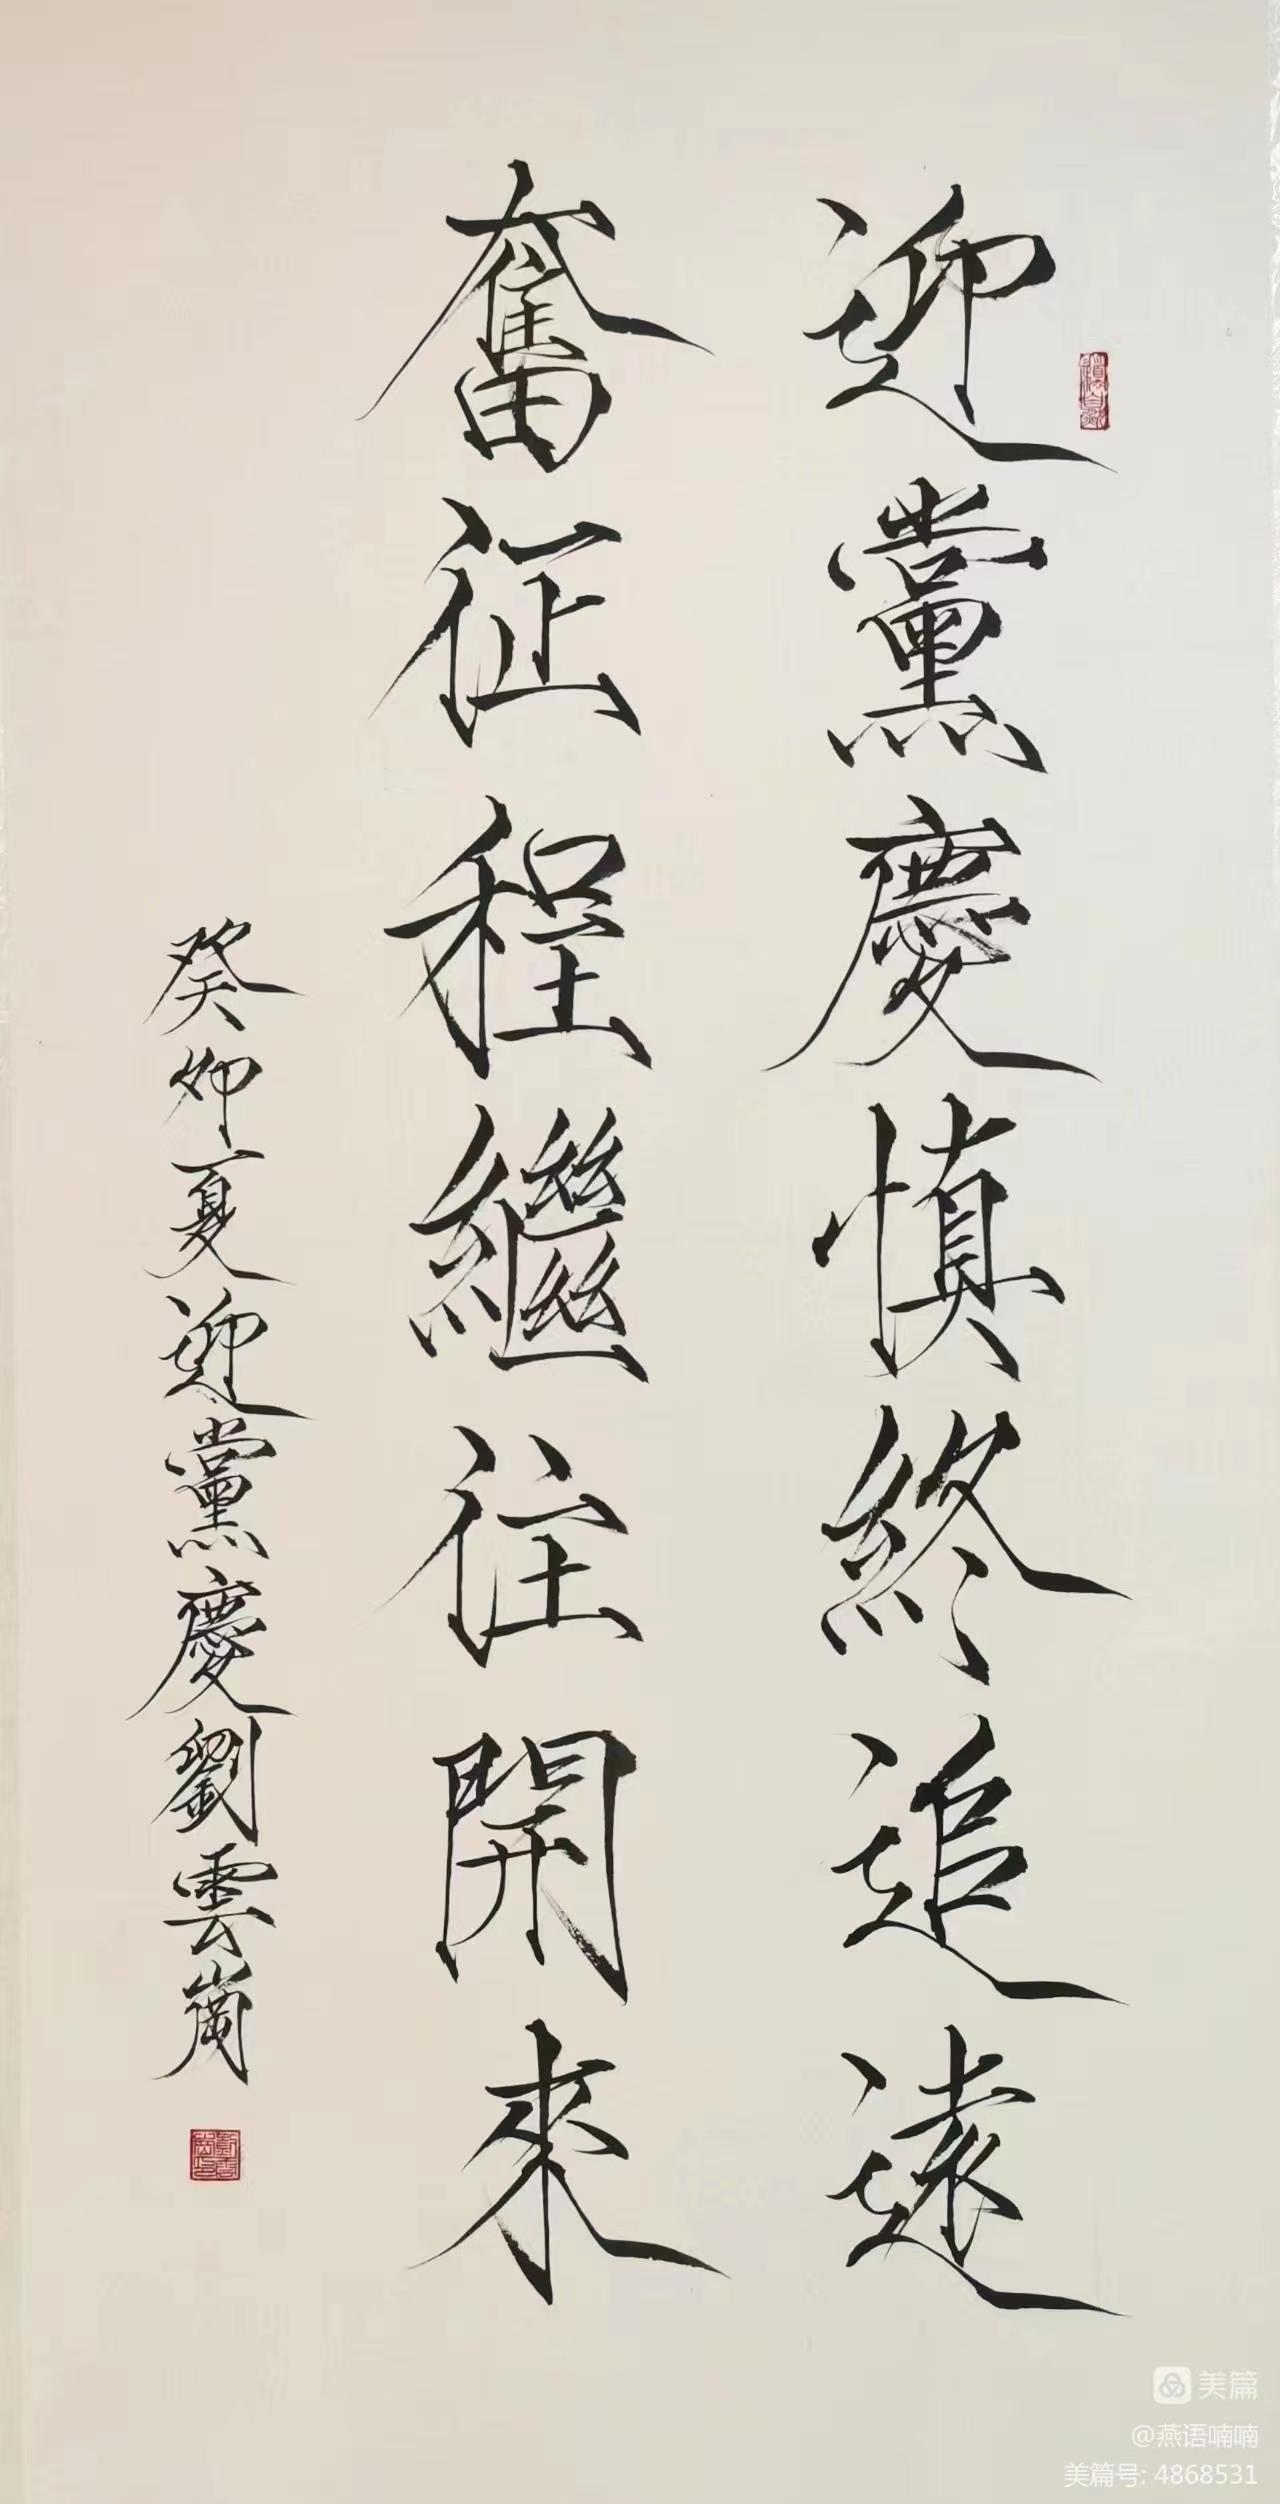 迎黨慶慎終追遠
奮征程繼往開來
癸卯夏迎黨慶劉雲嵐
美篇
@燕语喃喃
美篇号: 4868531